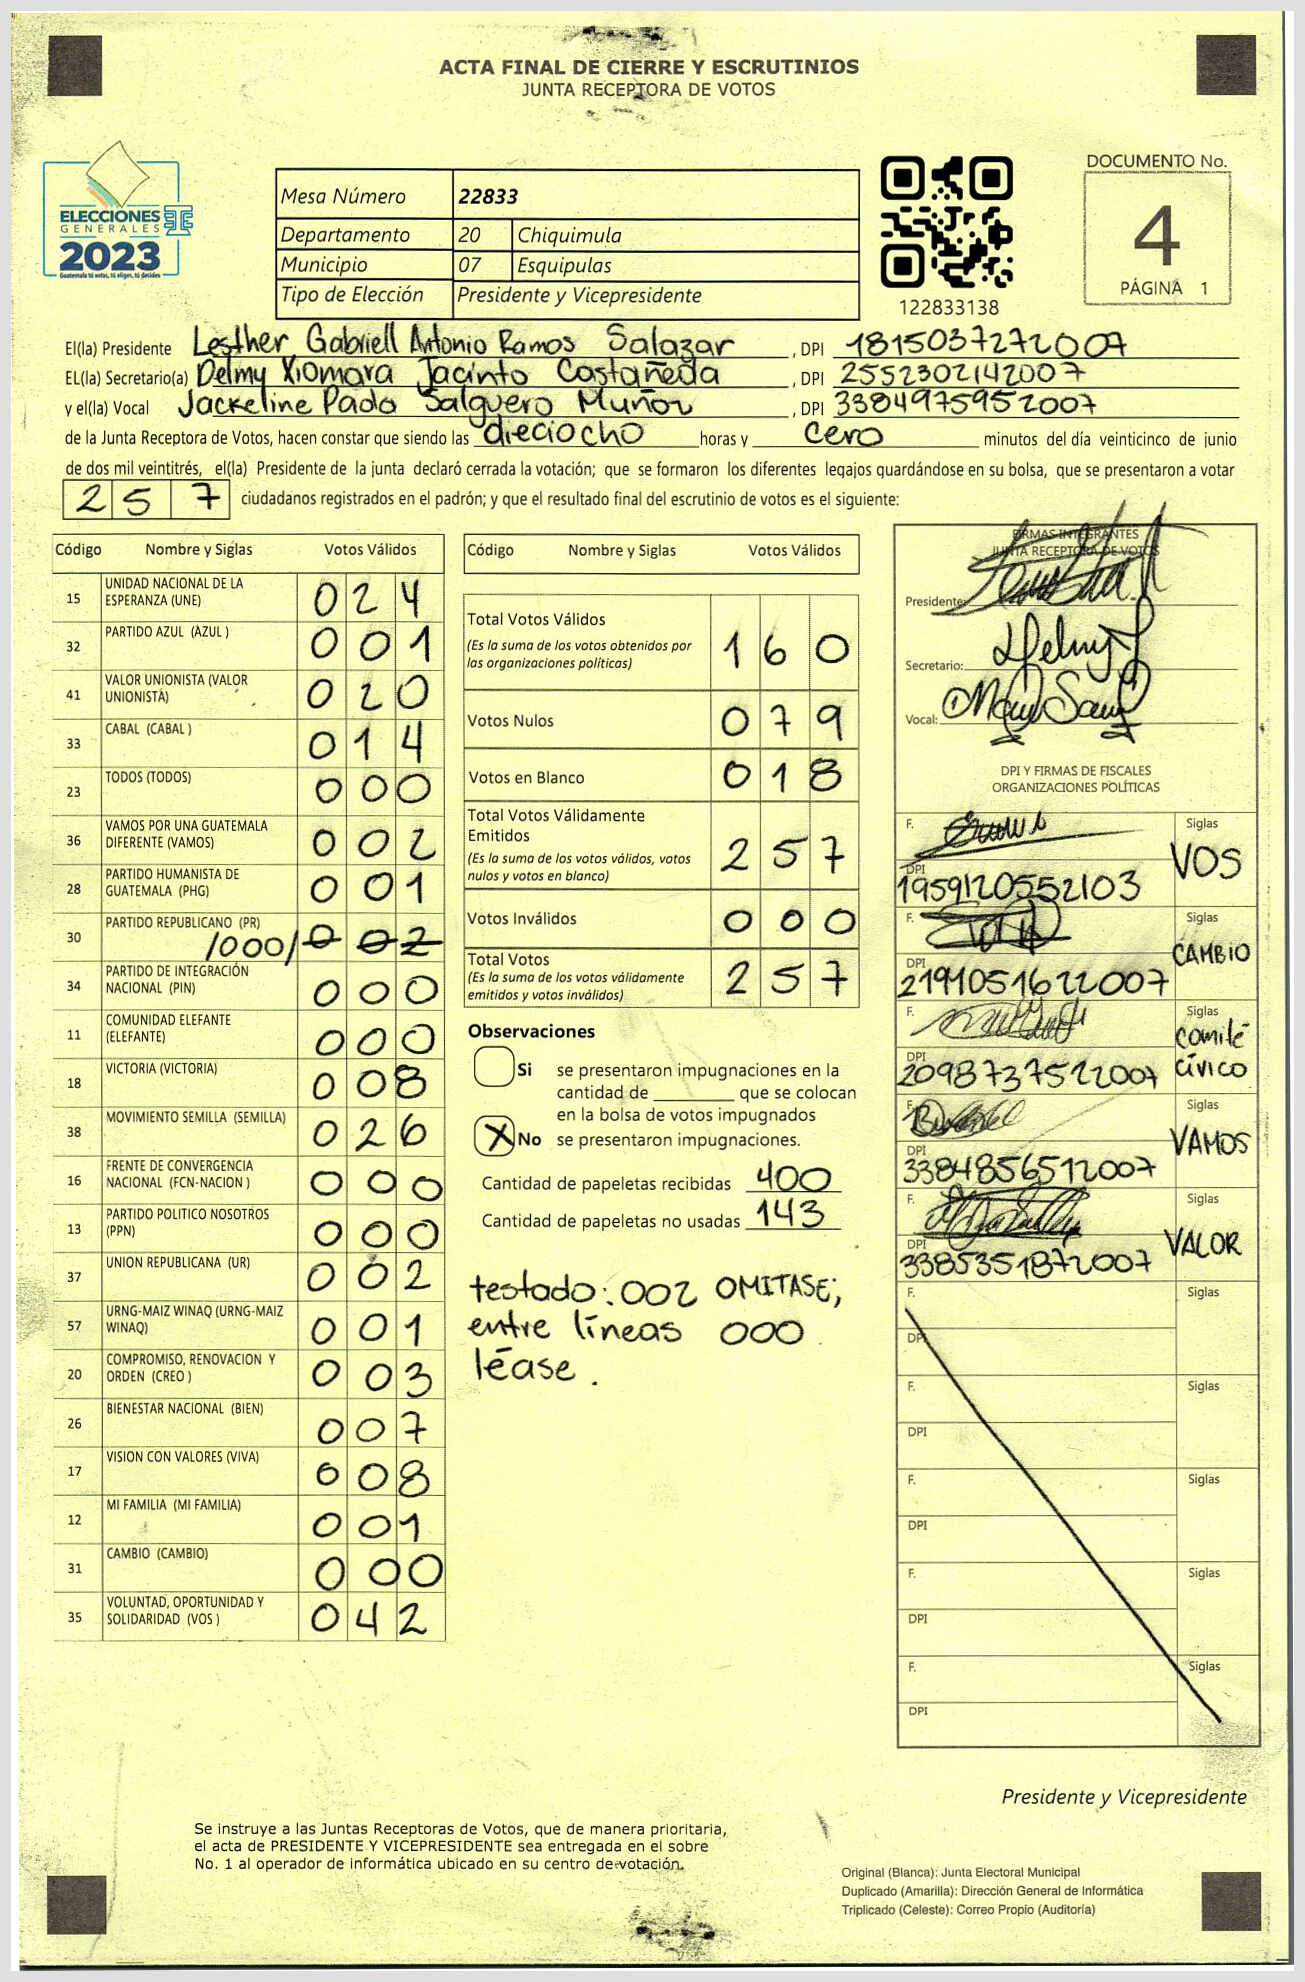 ACTA FINAL DE CIERRE Y ESCRUTINIOS
JUNTA RECEPTORA DE VOTOS
ELECCIONES
GENERALES
2023
Guatemala tú votas, tú eliges, tú decides
Mesa Número 22833
Departamento 20 Chiquimula
Municipio 07 Esquipulas
Tipo de Elección Presidente y Vicepresidente
122833138
DOCUMENTO No.
4
PÁGINA 1
El(la) Presidente Lesther Gabriell Antonio Ramos Salazar, DPI 1815037272007
EL(la) Secretario(a) Delmy Xiomara Jacinto Castañeda, DPI 2552302142007
y el(la) Vocal Jackeline Paola Salguero Muñoz, DPI 3384975952007
de la Junta Receptora de Votos, hacen constar que siendo las dieciocho horas y cero minutos del día veinticinco de junio
de dos mil veintitrés, el(la) Presidente de la junta declaró cerrada la votación; que se formaron los diferentes legajos guardándose en su bolsa, que se presentaron a votar
257 ciudadanos registrados en el padrón; y que el resultado final del escrutinio de votos es el siguiente:
Código Nombre y Siglas Votos Válidos
15 UNIDAD NACIONAL DE LA ESPERANZA (UNE) 024
32 PARTIDO AZUL (AZUL ) 001
41 VALOR UNIONISTA (VALOR UNIONISTA) 020
33 CABAL (CABAL ) 014
23 TODOS (TODOS) 000
36 VAMOS POR UNA GUATEMALA DIFERENTE (VAMOS) 002
28 PARTIDO HUMANISTA DE GUATEMALA (PHG) 001
30 PARTIDO REPUBLICANO (PR) /000/ 002
34 PARTIDO DE INTEGRACIÓN NACIONAL (PIN) 000
11 COMUNIDAD ELEFANTE (ELEFANTE) 000
18 VICTORIA (VICTORIA) 008
38 MOVIMIENTO SEMILLA (SEMILLA) 026
16 FRENTE DE CONVERGENCIA NACIONAL (FCN-NACION ) 000
13 PARTIDO POLITICO NOSOTROS (PPN) 000
37 UNION REPUBLICANA (UR) 002
57 URNG-MAIZ WINAQ (URNG-MAIZ WINAQ) 001
20 COMPROMISO, RENOVACION Y ORDEN (CREO ) 003
26 BIENESTAR NACIONAL (BIEN) 007
17 VISION CON VALORES (VIVA) 008
12 MI FAMILIA (MI FAMILIA) 001
31 CAMBIO (CAMBIO) 000
35 VOLUNTAD, OPORTUNIDAD Y SOLIDARIDAD (VOS ) 042
Código Nombre y Siglas Votos Válidos
Total Votos Válidos 160
(Es la suma de los votos obtenidos por
las organizaciones políticas)
Votos Nulos 079
Votos en Blanco 018
Total Votos Válidamente
Emitidos 257
(Es la suma de los votos válidos, votos
nulos y votos en blanco)
Votos Inválidos 000
Total Votos 257
(Es la suma de los votos válidamente
emitidos y votos inválidos)
Observaciones
Si se presentaron impugnaciones en la
cantidad de ________ que se colocan
en la bolsa de votos impugnados
X No se presentaron impugnaciones.
Cantidad de papeletas recibidas 400
Cantidad de papeletas no usadas 143
testado: 002 OMITASE;
entre líneas 000
léase.
FIRMAS INTEGRANTES
JUNTA RECEPTORA DE VOTOS
Presidente:
Secretario:
Vocal:
DPI Y FIRMAS DE FISCALES
ORGANIZACIONES POLÍTICAS
F. Siglas VOS
DPI 1959120552103
F. Siglas CAMBIO
DPI 2191051622007
F. Siglas Comité cívico
DPI 2098737522007
F. Siglas VAMOS
DPI 3384856512007
F. Siglas VALOR
DPI 3385351872007
F. Siglas
DPI
F. Siglas
DPI
F. Siglas
DPI
F. Siglas
DPI
F. Siglas
DPI
Presidente y Vicepresidente
Se instruye a las Juntas Receptoras de Votos, que de manera prioritaria,
el acta de PRESIDENTE Y VICEPRESIDENTE sea entregada en el sobre
No. 1 al operador de informática ubicado en su centro de votación.
Original (Blanca): Junta Electoral Municipal
Duplicado (Amarilla): Dirección General de Informática
Triplicado (Celeste): Correo Propio (Auditoría)